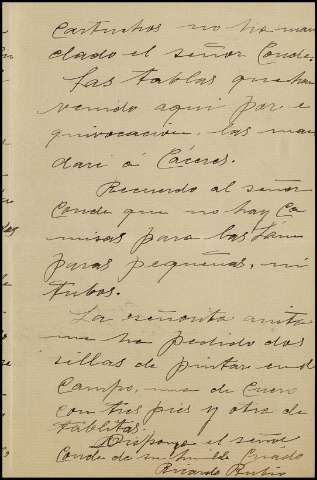 cartuchos no ha man
dado el señor Conde.
Las tablas que han
venido aqui por e
quivocacion, las man
daré á Cáceres.
Recuerdo al señor
Conde que no hay Ca
misas para las lám
paras pequeñas, ni
tubos.
La señorita Anita
me ha pedido dos
sillas de pintar en el
Campo, una de Cuero
con tres pies y otra de
tablitas.
el señor
Conde de su humilde Criado
Ricardo Rubio